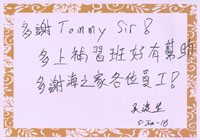 多謝 Tommy Sir！
多上補習班好有幫助
多謝海之家各位員工！
5-Jan-18